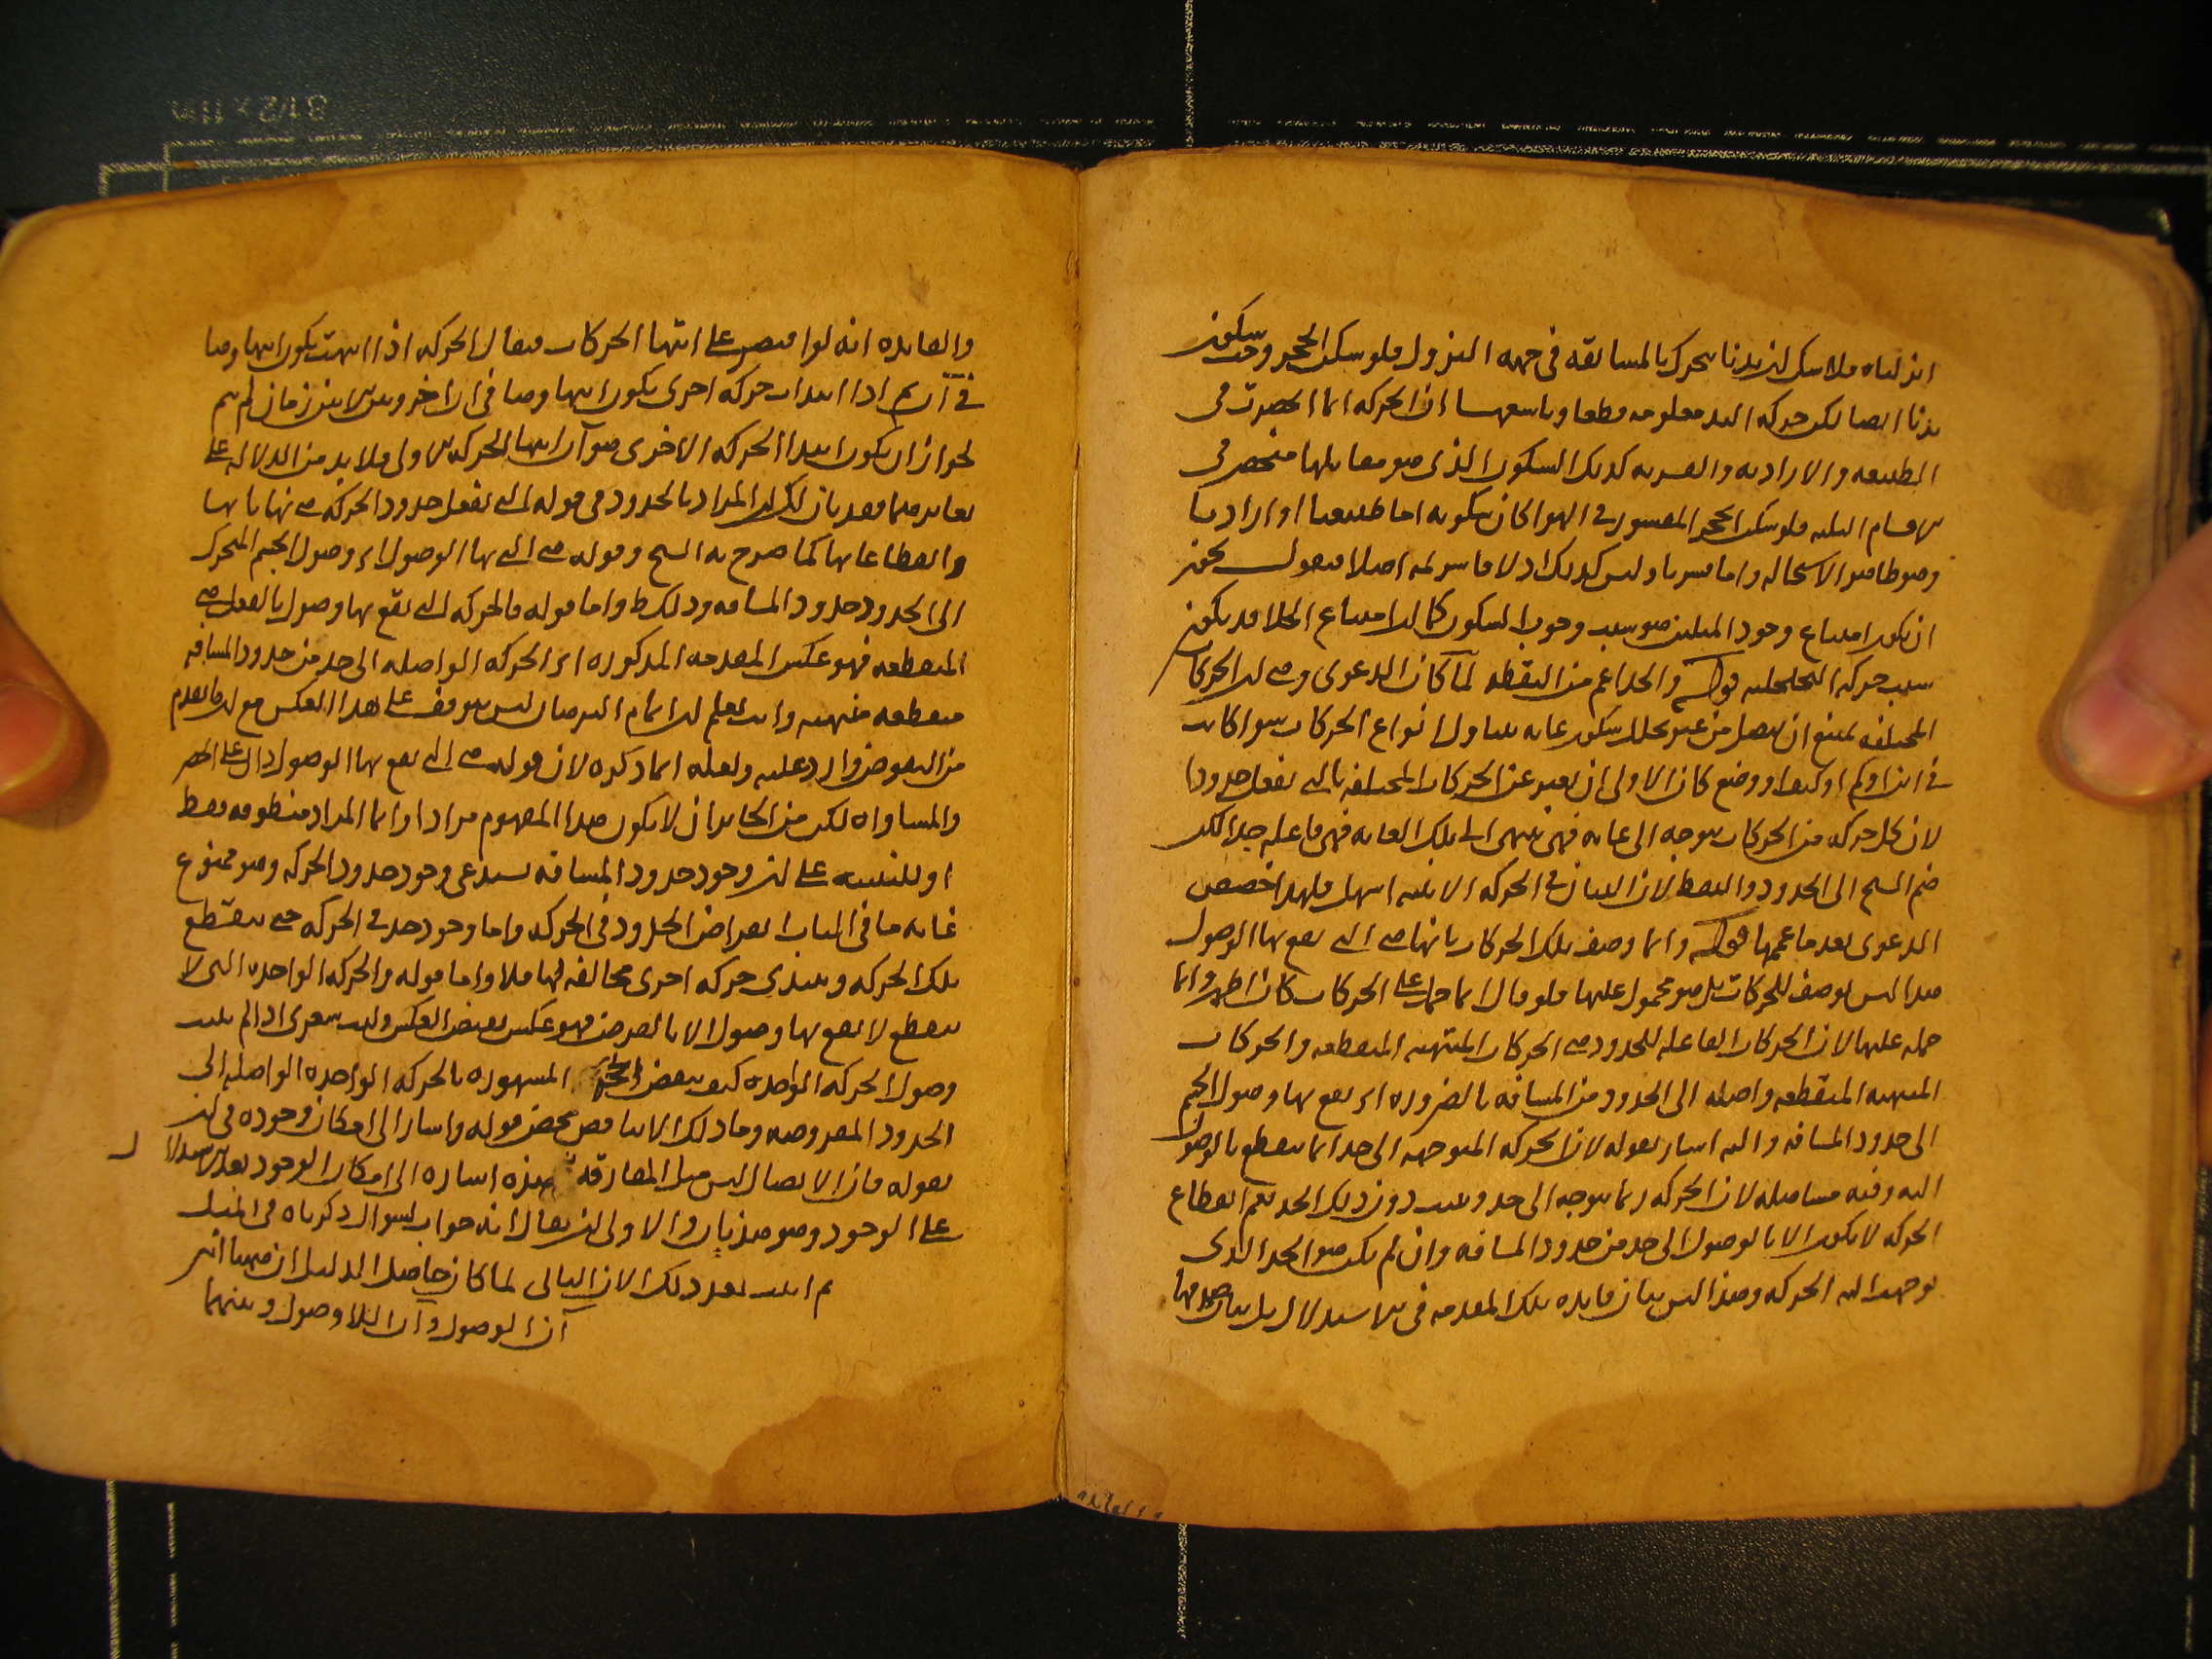 انزلناه فلا شك ان يدنا يتحرك بالمسابقة في جهة النزول فلو سكن الحجر وجب سكون
يدنا ايضا لكن حركة اليد معلومة قطعا وتاسعها ان الحركة لما انحصرت في
الطبيعية والارادية والقسرية كذلك السكون الذي هو مقابلها منحصر في
الاقسام الثلثة فلو سكن الحجر المقسور في الهوا كان سكونه اما طبيعيا او اراديا
وهو ظاهر الاستحالة واما قسريا وليس كذلك اذ لا قاسر ثمه اصلا فنقول يجوز
ان يكون امتناع وجود الميلين هو سبب وجوب السكون كما ان امتناع الخلا قد يكون
سبب حركة التخلخلية قوله والحد اعم من النقطة لما كان الدعوى هي ان الحركات
المختلفة يمتنع ان يتصل من غير تخلل سكون عامة يتناول انواع الحركات سوا كانت
في اين او كم او كيف او وضع كان الاولى ان يعبر عن الحركات المختلفة بالتي يفعل حدودا
لان كل حركة من الحركات يتوجه الى غاية فهي ينتهي الى تلك الغاية فهي فاعلة حدا لكن
ضم الشيخ الى الحدود والنقط لان البيان في الحركة الاينية اسهل فلهذا خصص
الدعوى بعد ما عممها قوله وانما وصف تلك الحركات بانها هي التي يقع بها الوصول
هذا ليس بوصف للحركات بل هو محمول عليها فلو قال انما حمل على الحركات كان اظهر وانما
حمله عليها لان الحركات الفاعلة للحدود هي الحركات المنتهية المنقطعة والحركات
المنتهية المنقطعة واصلة الى الحدود من المسافة بالضرورة اي يقع بها وصول الجسم
الى حدود المسافة واليه اشار بقوله لان الحركة المتوجهة الى حد انما ينقطع بالوصول
اليه وفيه مساهلة لان الحركة ربما يتوجه الى حد و دون ذلك الحد نعم انقطاع
الحركة لا يكون الا بالوصول الى حد من حدود المسافة وان لم يكن هو الحد الذي
توجهت اليه الحركة وهذا ليس بيان فايدة تلك المقدمة في الاستدلال بل بيان صدقها
والفايدة انه لو اقتصر على انتها الحركات فيقال الحركة اذا انتهت يكون انتهاوها
في آن ثم اذا ابتدات حركة اخرى يكون ابتداوها في ان اخر وبين الانين زمان لم يتم
لجواز ان يكون ابتدا الحركة الاخرى هو آن انتها الحركة الاولى فلا بد من الدلالة على
تغايرهما فقد بان لك ان المراد بالحدود في قوله التي يفعل حدود الحركة هي نهاياتها
وانقطاعاتها كما صرح به الشيخ وقوله هي التي بها الوصول اي وصول الجسم المتحرك
الى الحدود حدود المسافة وذلك ظ واما قوله فالحركة التي يقع بها وصول بالفعل هي
المنقطعة فهو عكس المقدمة المذكورة اي الحركة الواصلة الى حد من حدود المسافة
منقطعة منتهية وانت تعلم ان اتمام البرهان ليس يتوقف على هذا العكس مع ان ما تقدم
من النقوض وارد عليه ولعله انما ذكره لان قوله هي التي يقع بها الوصول دال على الحصر
والمساواة لكن من الجايز ان لا يكون هذا المفهوم مرادا وانما المراد منطوقه فقط
او للتنبيه على ان وجود حدود المسافة يستدعي وجود حدود الحركة وهو ممنوع
غاية ما في الباب افتراض الحدود في الحركة واما وجود حد في الحركة حتى ينقطع
تلك الحركة ويبتدي حركة اخرى مخالفة لها فلا واما قوله والحركة الواحدة التي لا
ينقطع لا يقع بها وصول الا بالفرض فهو عكس نقيض العكس وليت شعري اذا لم يثبت
وصول الحركة الواحدة كيف ينقض الحجة المشهورة بالحركة الواحدة الواصلة الى
الحدود المفروضة وما ذلك الا تناقض محض قوله واشار الى امكان وجوده في ان
بقوله فان الاتصال ليس مثل المفارقة هذه اشارة الى امكان الوجود بعد الاستدلال
على الوجود وهو هذيان والاولى ان يقال انه جواب لسوال ذكرناه في المثل
ثم اثبت بعد ذلك الان الثاني لما كان حاصل الدليل ان ههنا انين
آن الوصول وآن اللاوصول وبينهما